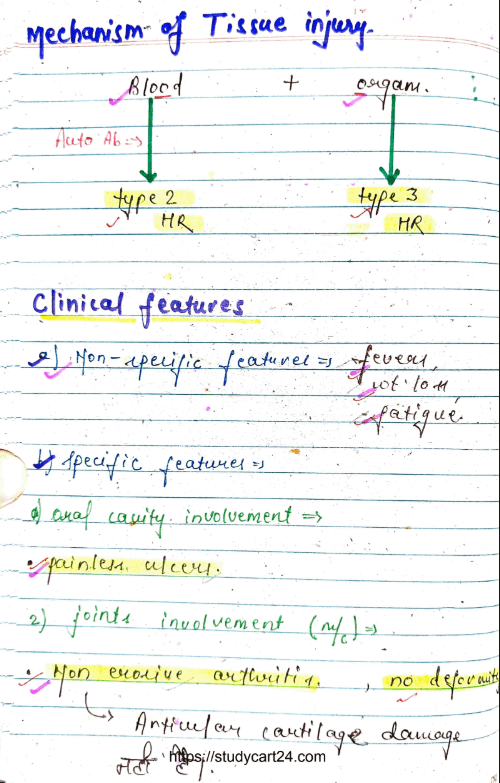 Mechanism of Tissue injury.
Blood + organs.
Auto Ab⇒
type 2 type 3
HR HR
Clinical features
a) Non-specific features ⇒ - fever,
- wt loss,
- fatigue.
b) specific features ⇒
1) oral cavity involvement ⇒
• painless ulcers.
2) joints involvement (m/c) ⇒
• Non erosive arthritis. , no deformity
↳ Articular cartilage damage
नहीं है।
https://studycart24.com